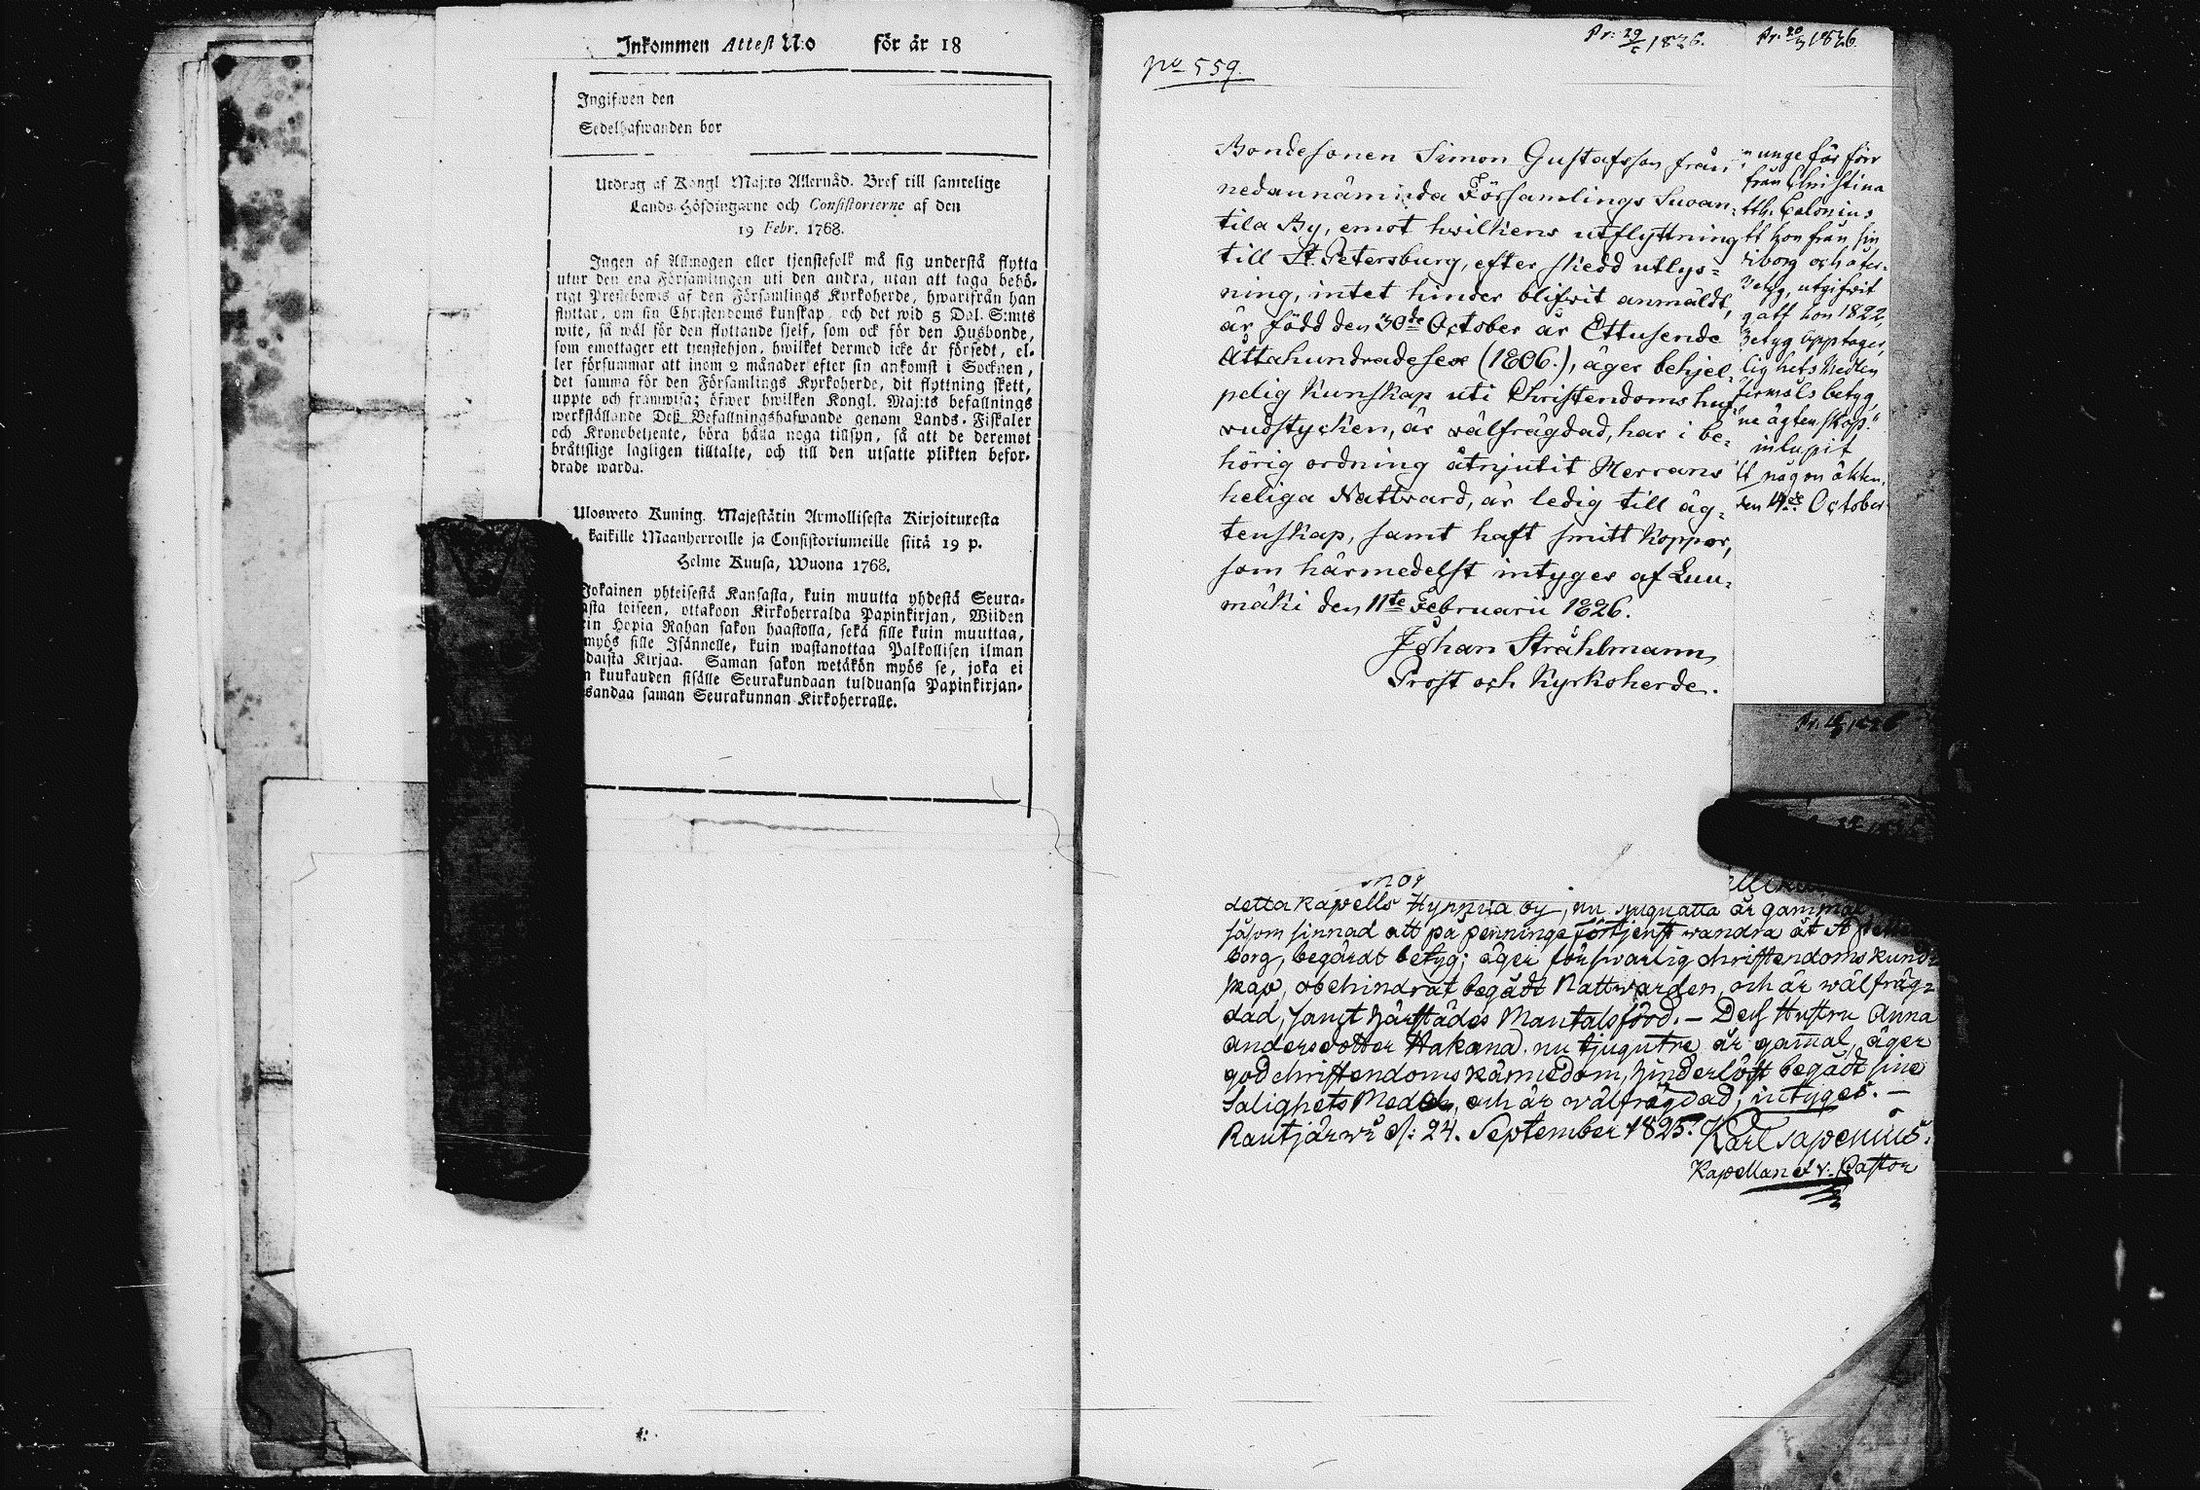 Inkommen Attest N:o för år 18
Ingifwen den
Sedelhafwanden bor
Utdrag af Kongl Maj:ts Allernåd. Bref till samtelige
Lands-Höfdingarne och Consistorierne af den
19 Febr. 1768.
Ingen af Allmogen eller tjenstefolk må sig understå flytta
utur den ena Församlingen uti den andra, utan att taga behö-
rigt Prestebewis af den Församlings Kyrkoherde, hwarifrån han
flyttar, om sin Christendoms kunskap, och det wid 5 Dal. S:mts
wite, så wäl för den flyttande sjelf, som ock för den Husbonde,
som emottager ett tjenstehjon, hwilket dermed icke är försedt, el-
ler försummar att inom 2 månader efter sin ankomst i Socknen,
det samma för den Församlings Kyrkoherde, dit flyttning skett,
uppte och framwisa; öfwer hwilken Kongl. Maj:ts befallnings
werkställande Deß Befallningshafwande genom Lands-Fiskaler
och Kronobetjente, böra hålla noga tillsyn, så att de deremot
bråttslige lagligen tilltalte, och till den utsatte plikten befor-
drade warda.
Ulosweto Kuning. Majestätin Armollisesta Kirjoituresta
kaikille Maanherroille ja Consistoriumeille siitä 19 p.
Helme Kuusa, Wuona 1768.
Jokainen yhteisestä Kansasta, kuin muutta yhdestä Seura-
asta toiseen, ottakoon Kirkoherralda Papinkirjan, Wiiden
in Hopia Rahan sakon haastolla, sekä sille kuin muuttaa,
myös sille Isännelle, kuin wastanottaa Palkollisen ilman
daista Kirjaa. Saman sakon wetäkön myös se, joka ei
n kuukauden sisälle Seurakundaan tulduansa Papinkirjan-
sandaa saman Seurakunnan Kirkoherralle.
No 559.
Pr: 29/5 1826.
Bondesonen Simon Gustafsson från
nedannämnda Församlings Suoan-
tila By, emot hwilkens utflyttning
till St. Petersburg, efter skedd utlys-
ning, intet hinder blifwit anmäldt,
är född den 30de October år Ettusende
Åttahundradesex (1806.), äger behjel-
pelig Kunskap uti Christendoms huf-
wudstycken, är wälfrägdad, har i be-
hörig ordning åtnjutit Herrans
heliga Nattward, är ledig till äg-
tenskap, samt haft smitt koppor,
som härmedelst intyges af Luu-
mäki den 11te Februarii 1826.
Johan Stråhlmann,
Prost och Kyrkoherde.
unge för förr
från Christina
tth. Calonius
tt hon från sin
iborg och åter-
Betyg, utgifwit
gått hon 1822,
Betyg upptager,
lighets Medlen
firmåls betyg,
ne ägtenskap."
inlupit
tt någon äkten-
den 14de October
detta kapells Hynnilä by, nu är gammal
såsom sinnad att på penninge förtjenst wandra åt St
borg, begärdt betyg; äger förswarlig christendoms kund-
skap, obehindrat begådt Nattwarden, och är wälfräg-
dad, samt härstädes Mantalsförd. — Dess Hustru Anna
Andersdotter Hakana. nu tjugutre år gammal, äger
god christendoms kännedom, hinderlöst begådt sine
Salighets Medel, och är wälfrägdad; intyges. —
Rautjärwi d: 24. September 1825.
Kapellan & v. Pastor